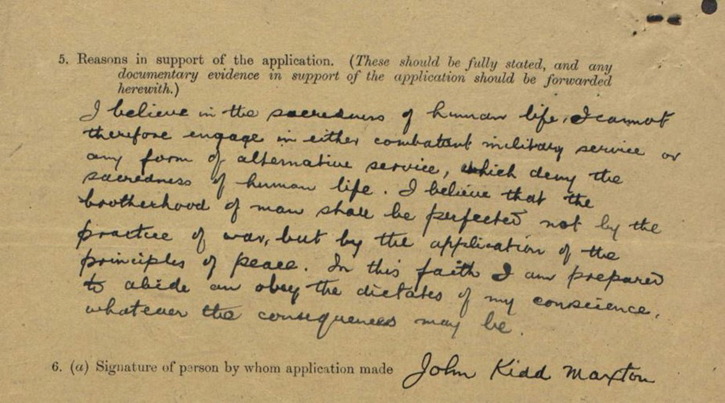 5. Reasons in support of the application. (These should be fully stated, and any
documentary evidence in support of the application should be forwarded
herewith.)
I believe in the sacredness of human life, I cannot
therefore engage in either combatant military service or
any form of alternative service, which deny the
sacredness of human life. I believe that the
brotherhood of man shall be perfected not by the
practice of war, but by the application of the
principles of peace. In this faith I am prepared
to abide an obey the dictates of my conscience,
whatever the consequences may be.
6. (a) Signature of person by whom application made John Kidd Maxton